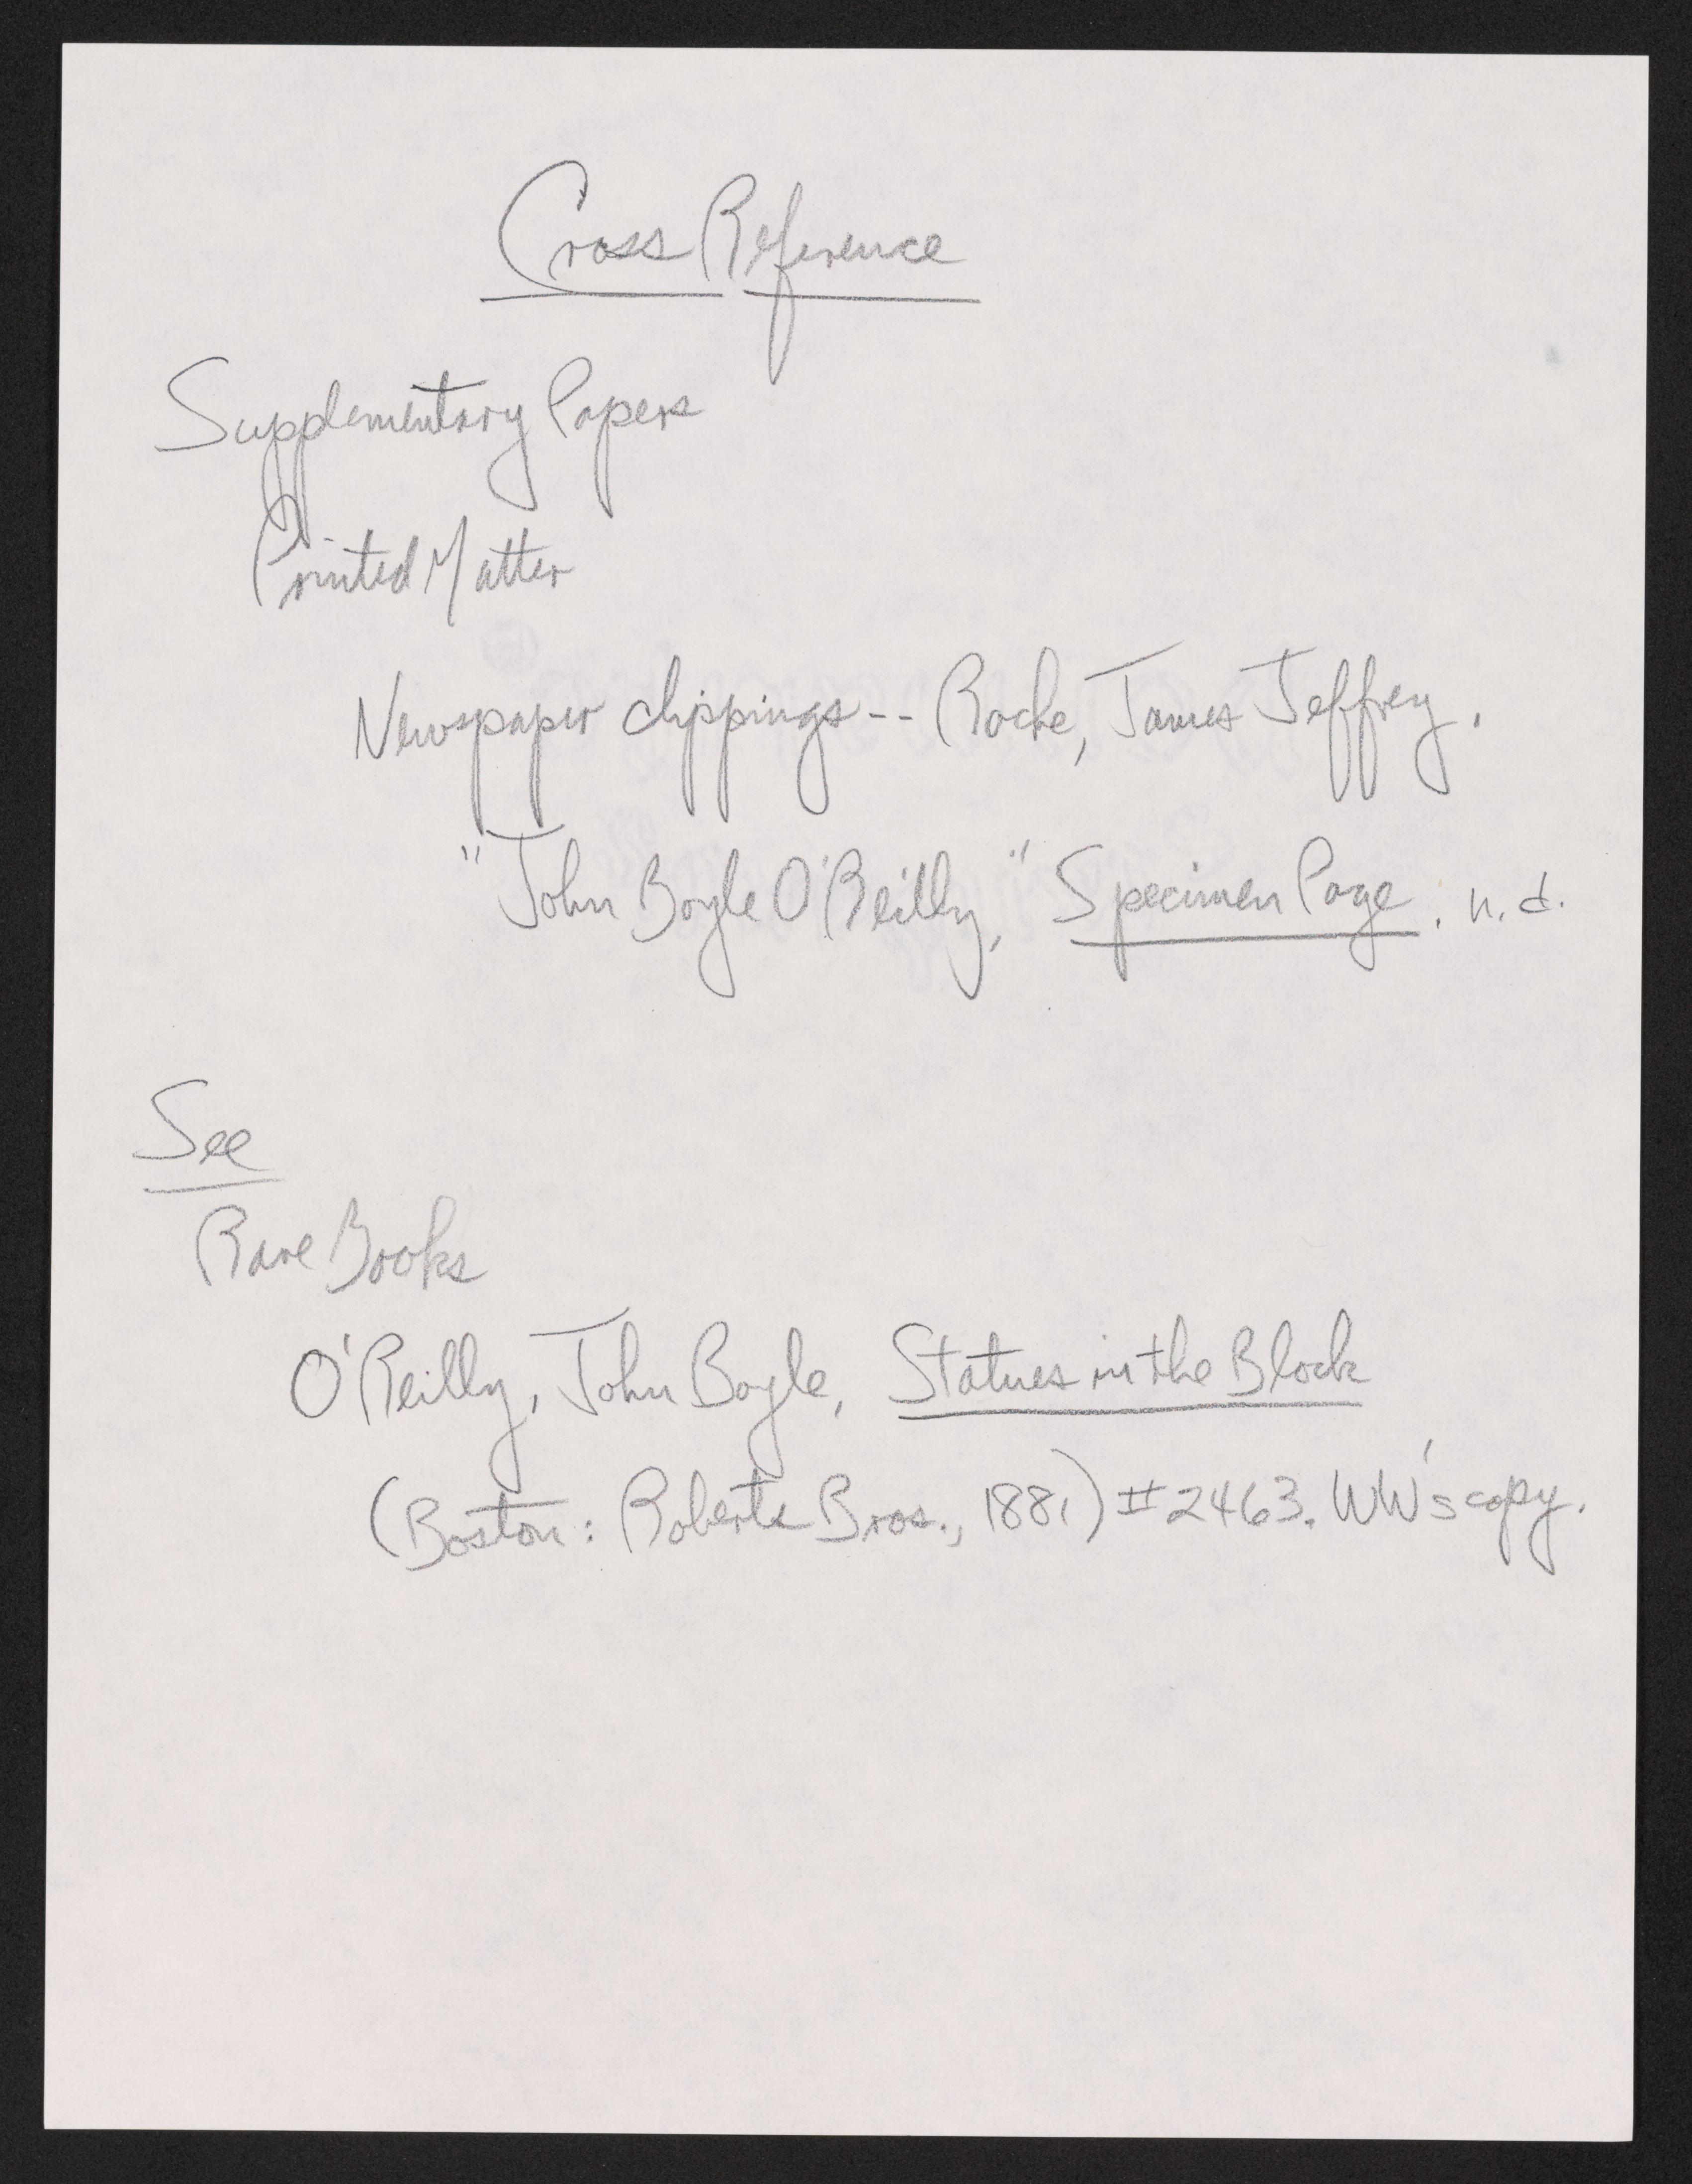 Cross Reference
Supplementary Papers
Printed Matter
Newspaper clippings -- Roche, James Jeffrey.
"John Boyle O'Reilly," Specimen Page. n.d.
See
Rare Books
O'Reilly, John Boyle, Statues in the Block
(Boston: Roberts Bros., 1881) #2463. WW's copy.